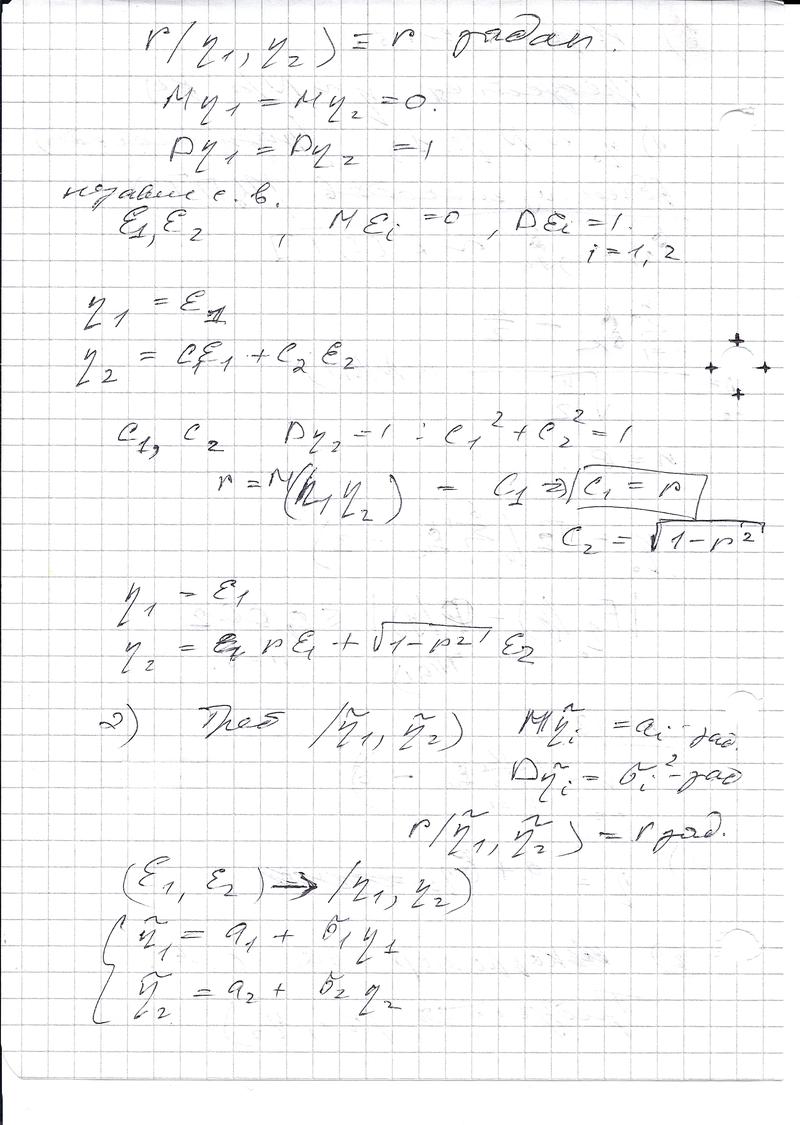 r(η₁, η₂) ≡ r задан.
Mη₁ = Mη₂ = 0.
Dη₁ = Dη₂ = 1
независ с. в.
ε₁, ε₂ , Mεᵢ = 0 , Dεᵢ = 1.
i = 1, 2
η₁ = ε₁
η₂ = c₁ε₁ + c₂ ε₂
c₁, c₂ Dη₂ = 1 : c₁² + c₂² = 1
r = M(η₁ η₂) = c₁ ⇒ c₁ = r
c₂ = √(1 - r²)
η₁ = ε₁
η₂ = r ε₁ + √(1 - r²) ε₂
2) Треб (η̃₁, η̃₂) Mη̃ᵢ = aᵢ - зад.
Dη̃ᵢ = σᵢ² - зад
r(η̃₁, η̃₂) = r зад.
(ε₁, ε₂) → (η₁, η₂)
{ η̃₁ = a₁ + σ₁ η₁
η̃₂ = a₂ + σ₂ η₂